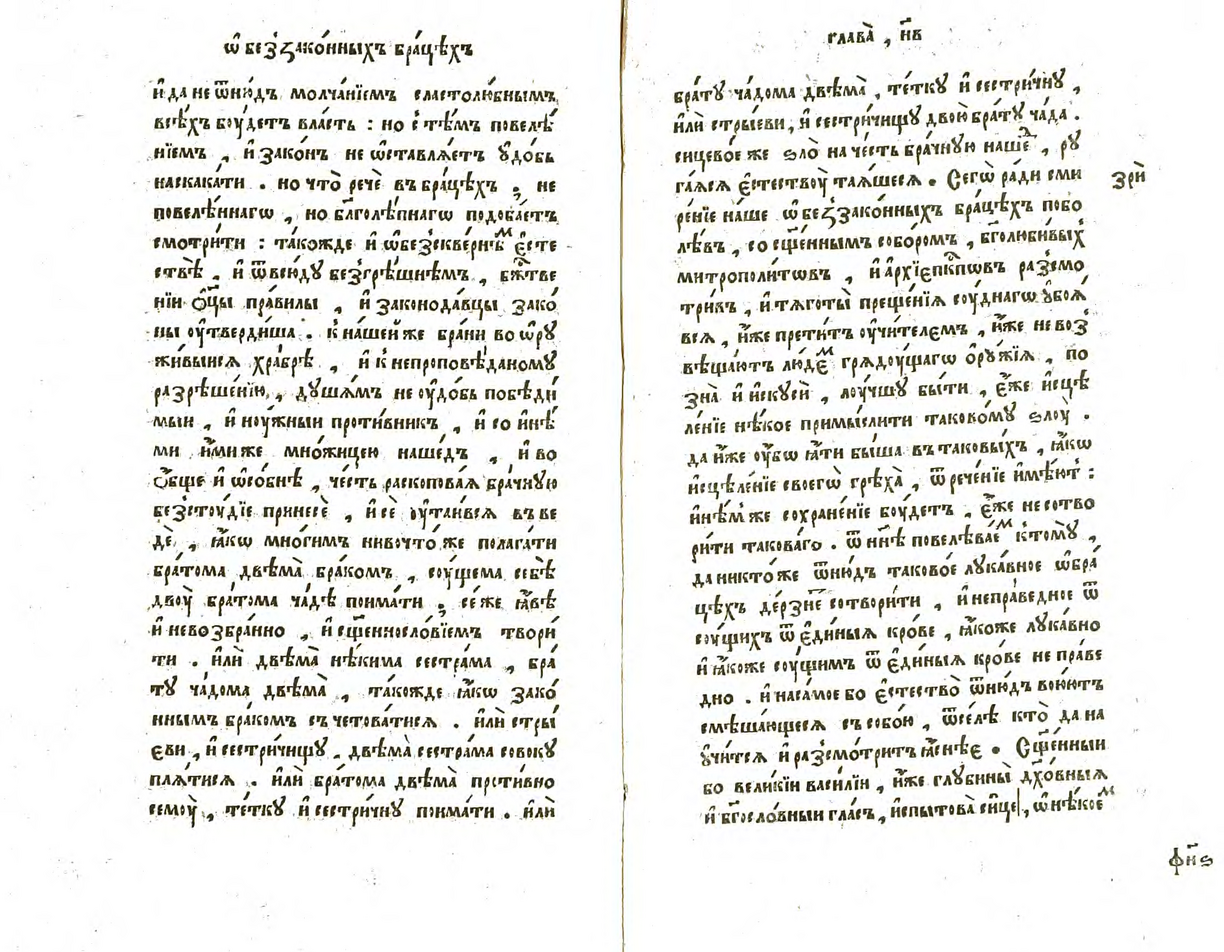 ѡ҆ беззако́нныхъ бра́цѣхъ
и҆ да не ѿню́дъ молча́нїемъ сластолю́бнымъ
всѣ́хъ бꙋ́детъ вла́сть : но с̾ тѣ́мъ повелѣ́
нїемъ , и҆ зако́нъ не ѡ҆ставлѧ́етъ ᲂу҆до́бь
наскака́ти . но что̀ речѐ въ бра́цѣхъ ; не
повелѣ́ннагѡ , но бл҃голѣ́пнагѡ подоба́етъ
смотри́ти : та́кожде и҆ ѡ҆ безскве́рнѣм є҆сте
ствѣ̀ , и҆ ѿвсю́дꙋ безгрѣ́шнѣмъ , бж҃е́стве
нїи ѻ҆ц҃ы̀ пра́вилы , и҆ законода́вцы зако́
ны ᲂу҆тверди́ша . к̾ на́шей же бра́ни во ѡ҆рꙋ
жи́выисѧ хра́брѣ , и҆ к̾ непроповѣ́даномꙋ
разрѣше́нїю , дꙋша́мъ не ᲂу҆до́бь побѣди́
мыи , и҆ нꙋ́жныи проти́вникъ , и҆ со и҆нѣ́
ми и҆́миже мно́жицею наше́дъ , и҆ во
ѻ҆́бще и҆ ѡ҆со́бнѣ , че́сть раскопова́ѧ бра́чнꙋю
безстꙋ́дїе принесѐ , и҆ сѐ ᲂу҆таи́всѧ въ ве
дѐ , ꙗ҆́кѡ мно́гимъ нивочто́же полага́ти
бра́тома двѣма̀ бра́комъ , сꙋ́щема себѣ̀
двꙋ̀ бра́тома ча́дѣ поима́ти ; се́ же ꙗ҆́вѣ
и҆ невозбра́нно , и҆ сщ҃еннослѡ́вїемъ твори́
ти . и҆лѝ двѣма̀ нѣ́кима сестра́ма , бра́
тꙋ ча́дома двѣма̀ , та́кожде ꙗ҆́кѡ зако́
ннымъ бра́комъ съчетова́тисѧ . и҆лѝ стры́
еви , и҆ сестри́чищꙋ , двѣма̀ сестра́ма совокꙋ
плѧ́тисѧ . и҆лѝ бра́тома двѣма̀ проти́вно
семꙋ̀ , те́ткꙋ и҆ сестри́чнꙋ поима́ти . и҆лѝ
глава̀ , н҃в
бра́тꙋ ча́дома двѣма̀ , те́ткꙋ и҆ сестри́чнꙋ ,
и҆лѝ стры́еви , и҆ сестри́чищꙋ двою̀ бра́тꙋ ча́да .
сицево́е же ѕло̀ на че́сть бра́чнꙋю на́ше , рꙋ
га́ѧсѧ є҆стествꙋ̀ таѧ́шеесѧ . Сегѡ̀ ра́ди сми
ре́нїе на́ше ѡ҆ беззако́нныхъ бра́цѣхъ побо
лѣ́въ , со сщ҃е́ннымъ собо́ромъ , бг҃олюби́выхъ
митрополи́тѡвъ , и҆ а҆рхїепкⷭ҇пѡвъ разсмо
три́въ , и҆ тѧготы̀ преще́нїѧ сꙋ́днагѡ ᲂу҆боѧ́
всѧ , и҆́же прети́тъ ᲂу҆чи́телемъ , и҆́же не воз
вѣща́ютъ лю́дем грѧдꙋ́щагѡ ѻ҆рꙋ́жїѧ , по
зна̀ и҆ и҆скꙋсѝ , лꙋ́чшꙋ бы́ти , є҆́же и҆сцѣ
ле́нїе нѣ́кое примы́слити таково́мꙋ ѕлꙋ̀ .
да и҆́же ᲂу҆́бѡ ꙗ҆́ти бы́ша въ таковы́хъ , ꙗ҆́кѡ
и҆сцѣле́нїе своегѡ̀ грѣха̀ , ѿрече́нїе и҆мѣ́ют :
и҆нѣ́м же сохране́нїе бꙋ́детъ , є҆́же не сотво
ри́ти такова́го . ѿ нн҃ѣ повелѣва́ем к̾томꙋ̀ ,
да никто́же ѿню́дъ таково́е лꙋка́вное ѡ҆ бра́
цѣхъ де́рзне сотвори́ти , и҆ непра́ведное ѿ
сꙋ́щихъ ѿ є҆ди́ныѧ кро́ве , ꙗ҆́коже лꙋка́вно
и҆ ꙗ҆́коже сꙋ́щимъ ѿ є҆ди́ныѧ кро́ве не пра́ве
дно . и҆ на са́мое бо є҆стество̀ ѿню́дъ вою́ютъ
смѣша́ющесѧ съ собо́ю , ѿсе́лѣ кто̀ да на
ᲂу҆чи́тсѧ и҆ разсмо́тритъ ꙗ҆снѣ́е . Сщ҃е́нныи
бо вели́кїи васи́лїи , и҆́же глꙋбины̀ дх҃о́вныѧ
и҆ бг҃осло́вныи гла́съ , и҆спытова̀ си́це , ѡ҆ нѣ́коем
зрѝ
фн҃ѕ